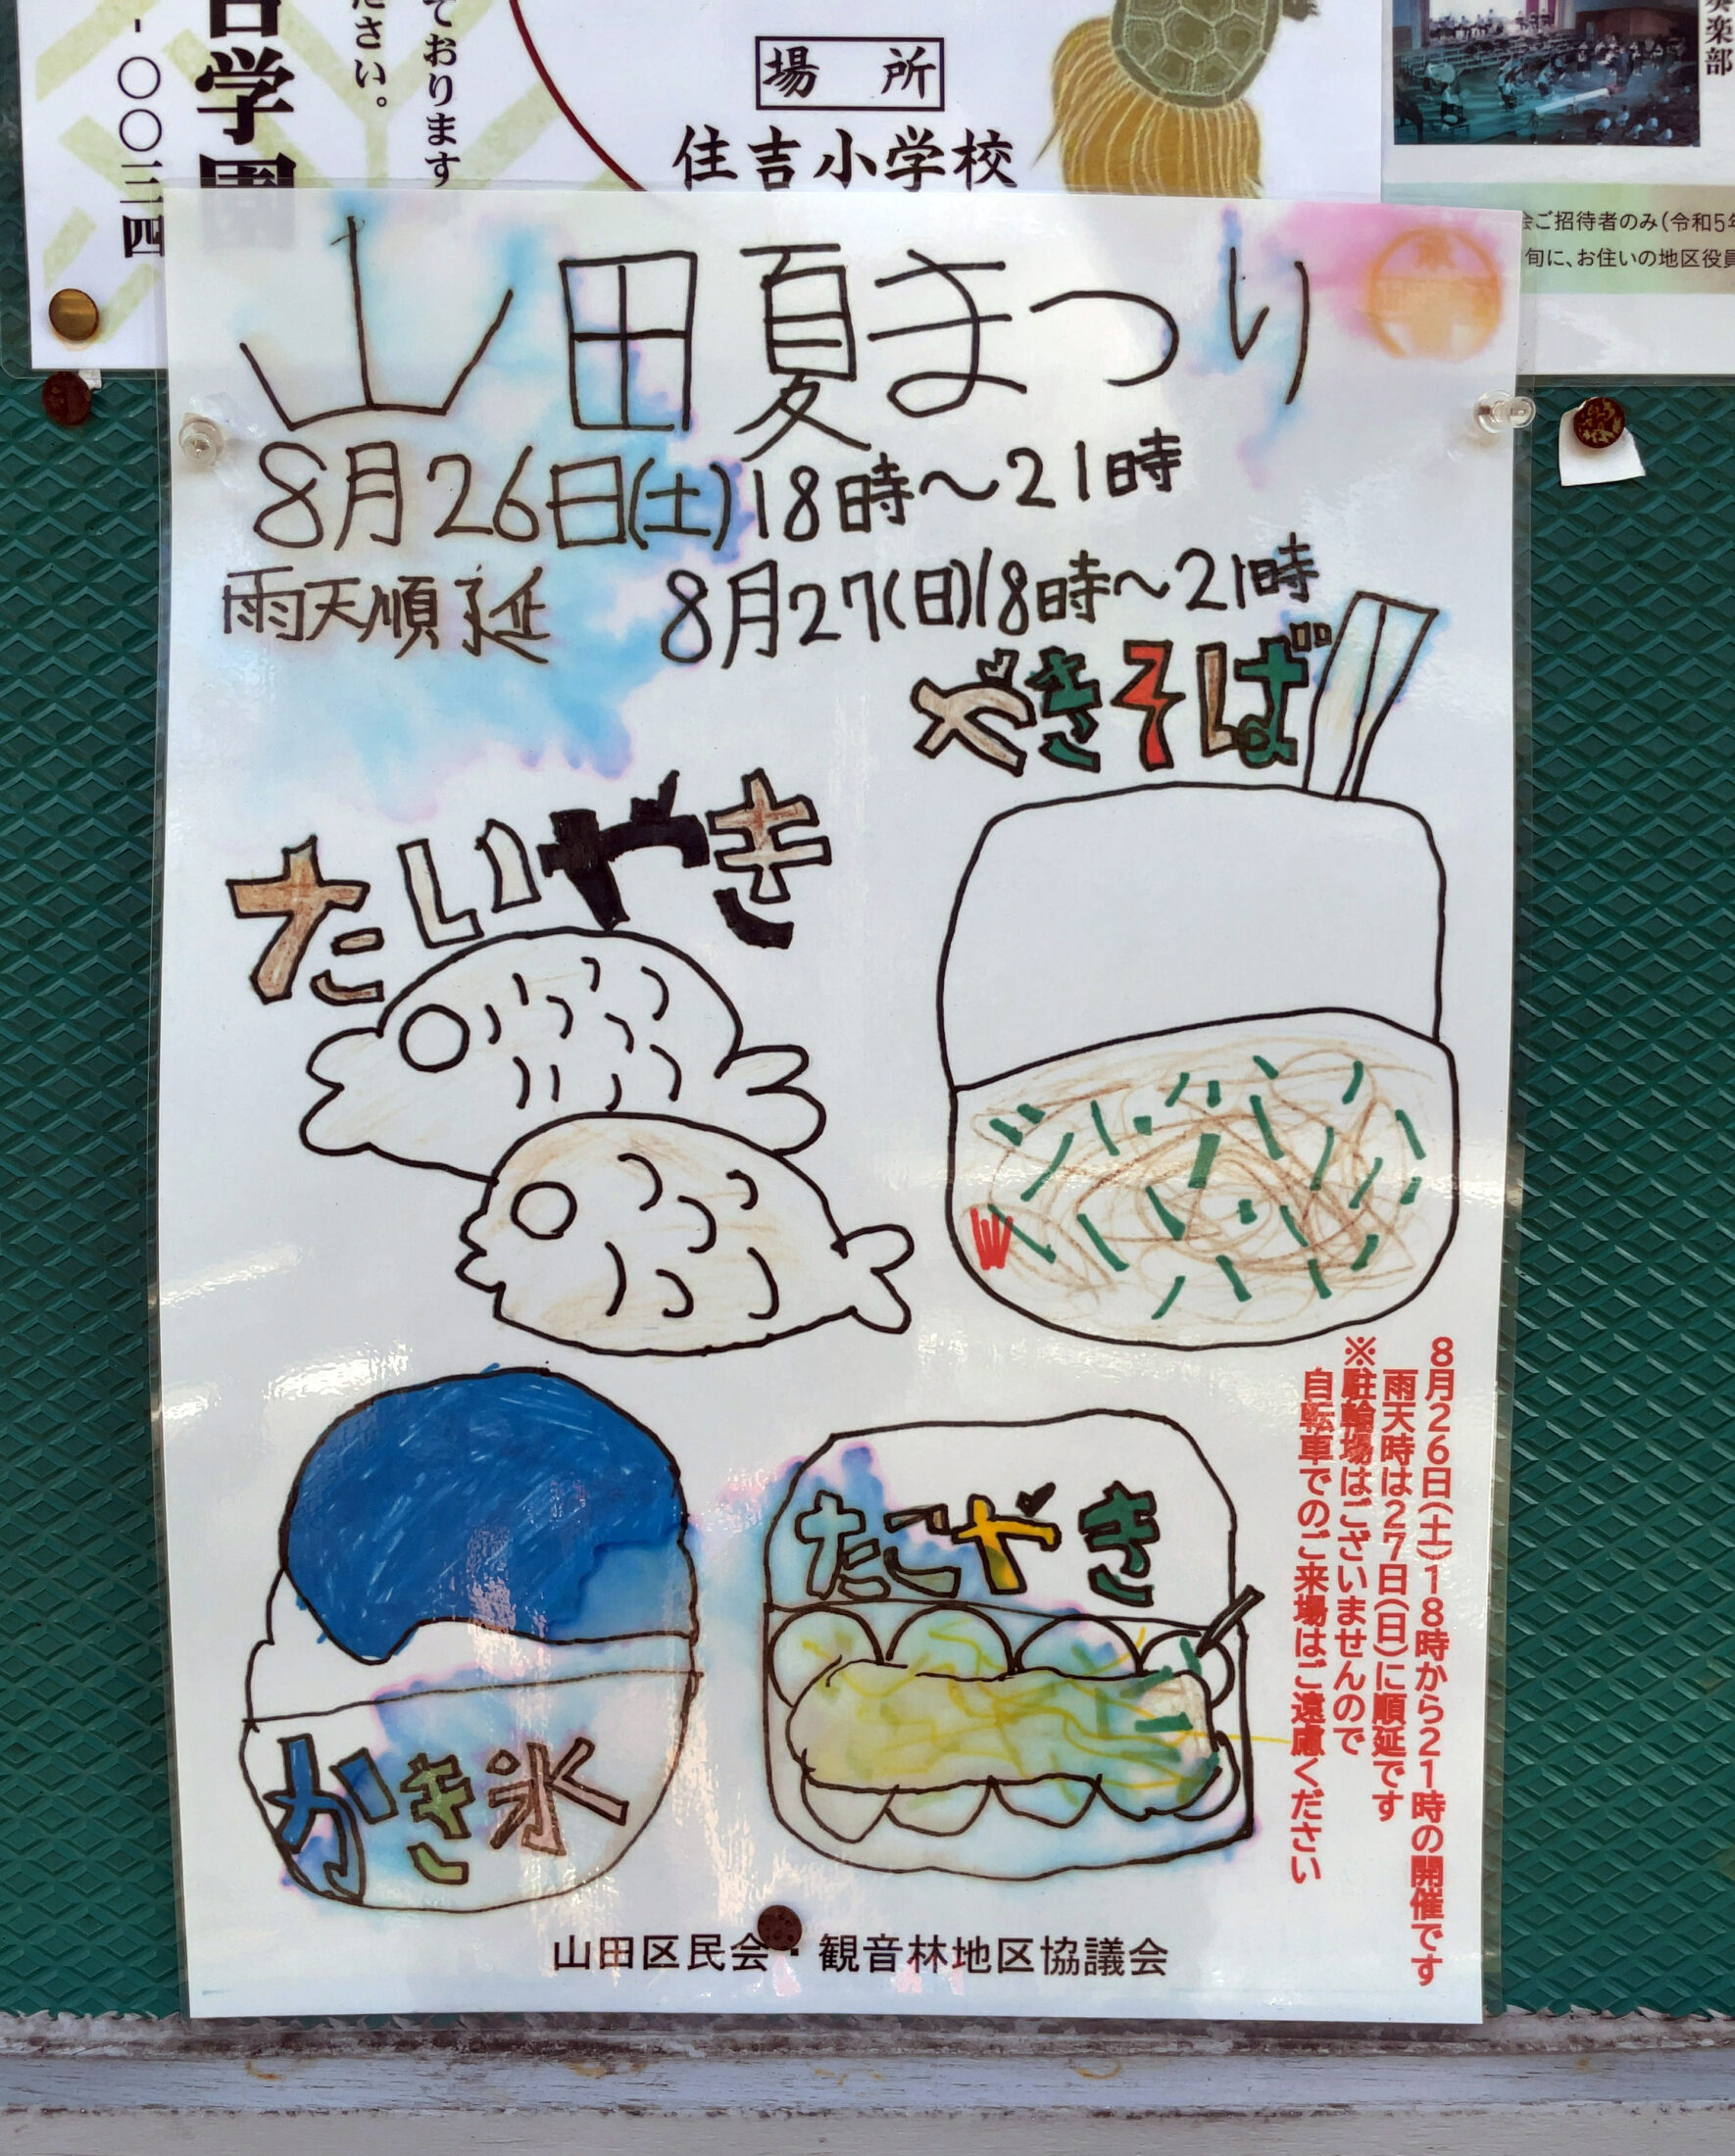 ております
ださい。
吉学園
-〇〇三四
場 所
住吉小学校
奏楽部
会ご招待者のみ(令和5年
旬に、お住いの地区役員
山田夏まつり
8月26日(土)18時~21時
雨天順延 8月27(日)18時~21時
やきそば
たいやき
かき氷
たこやき
8月26日(土)18時から21時の開催です
雨天時は27日(日)に順延です
※駐輪場はございませんので
自転車でのご来場はご遠慮ください
山田区民会・観音林地区協議会